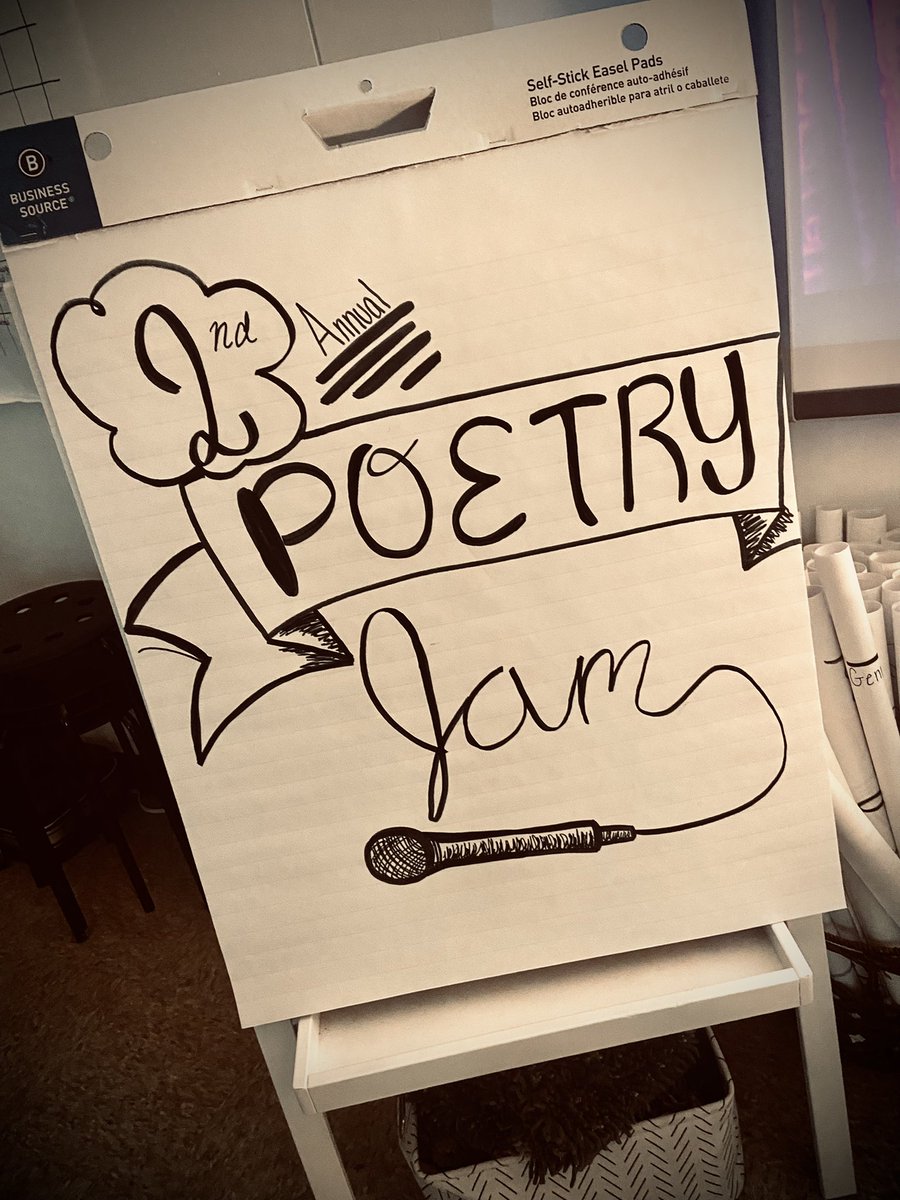 Self-Stick Easel Pads
Bloc de conférence auto-adhésif
Bloc autoadherible para atril o caballete
B
BUSINESS
SOURCE®
2nd
Annual
POETRY
Jam
Gen